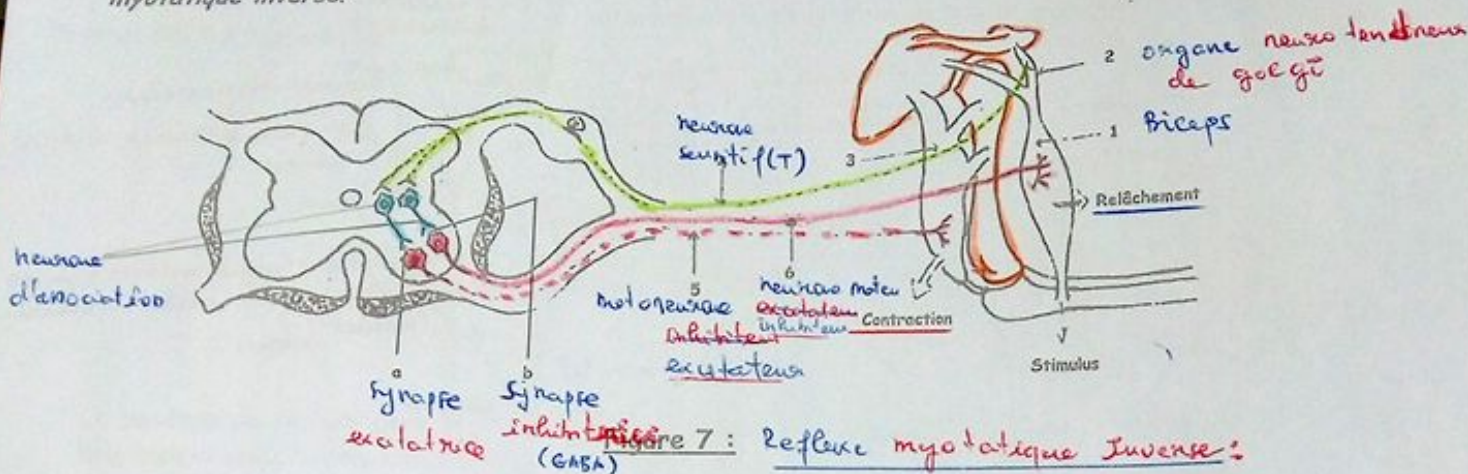 myotatique inverse.
2 organe neuro tendineux
de golgi
1 Biceps
neurone
sensitif(T)
3
Relâchement
neurone
d'association
5
6
motoneurone
inhibiteur
excitateur
neurone moteu
excitateur
inhibiteur
Contraction
Stimulus
a
synapse
excitatrice
b
Synapse
inhibitrice
(GABA)
Figure 7 : Reflexe myotatique Inverse :